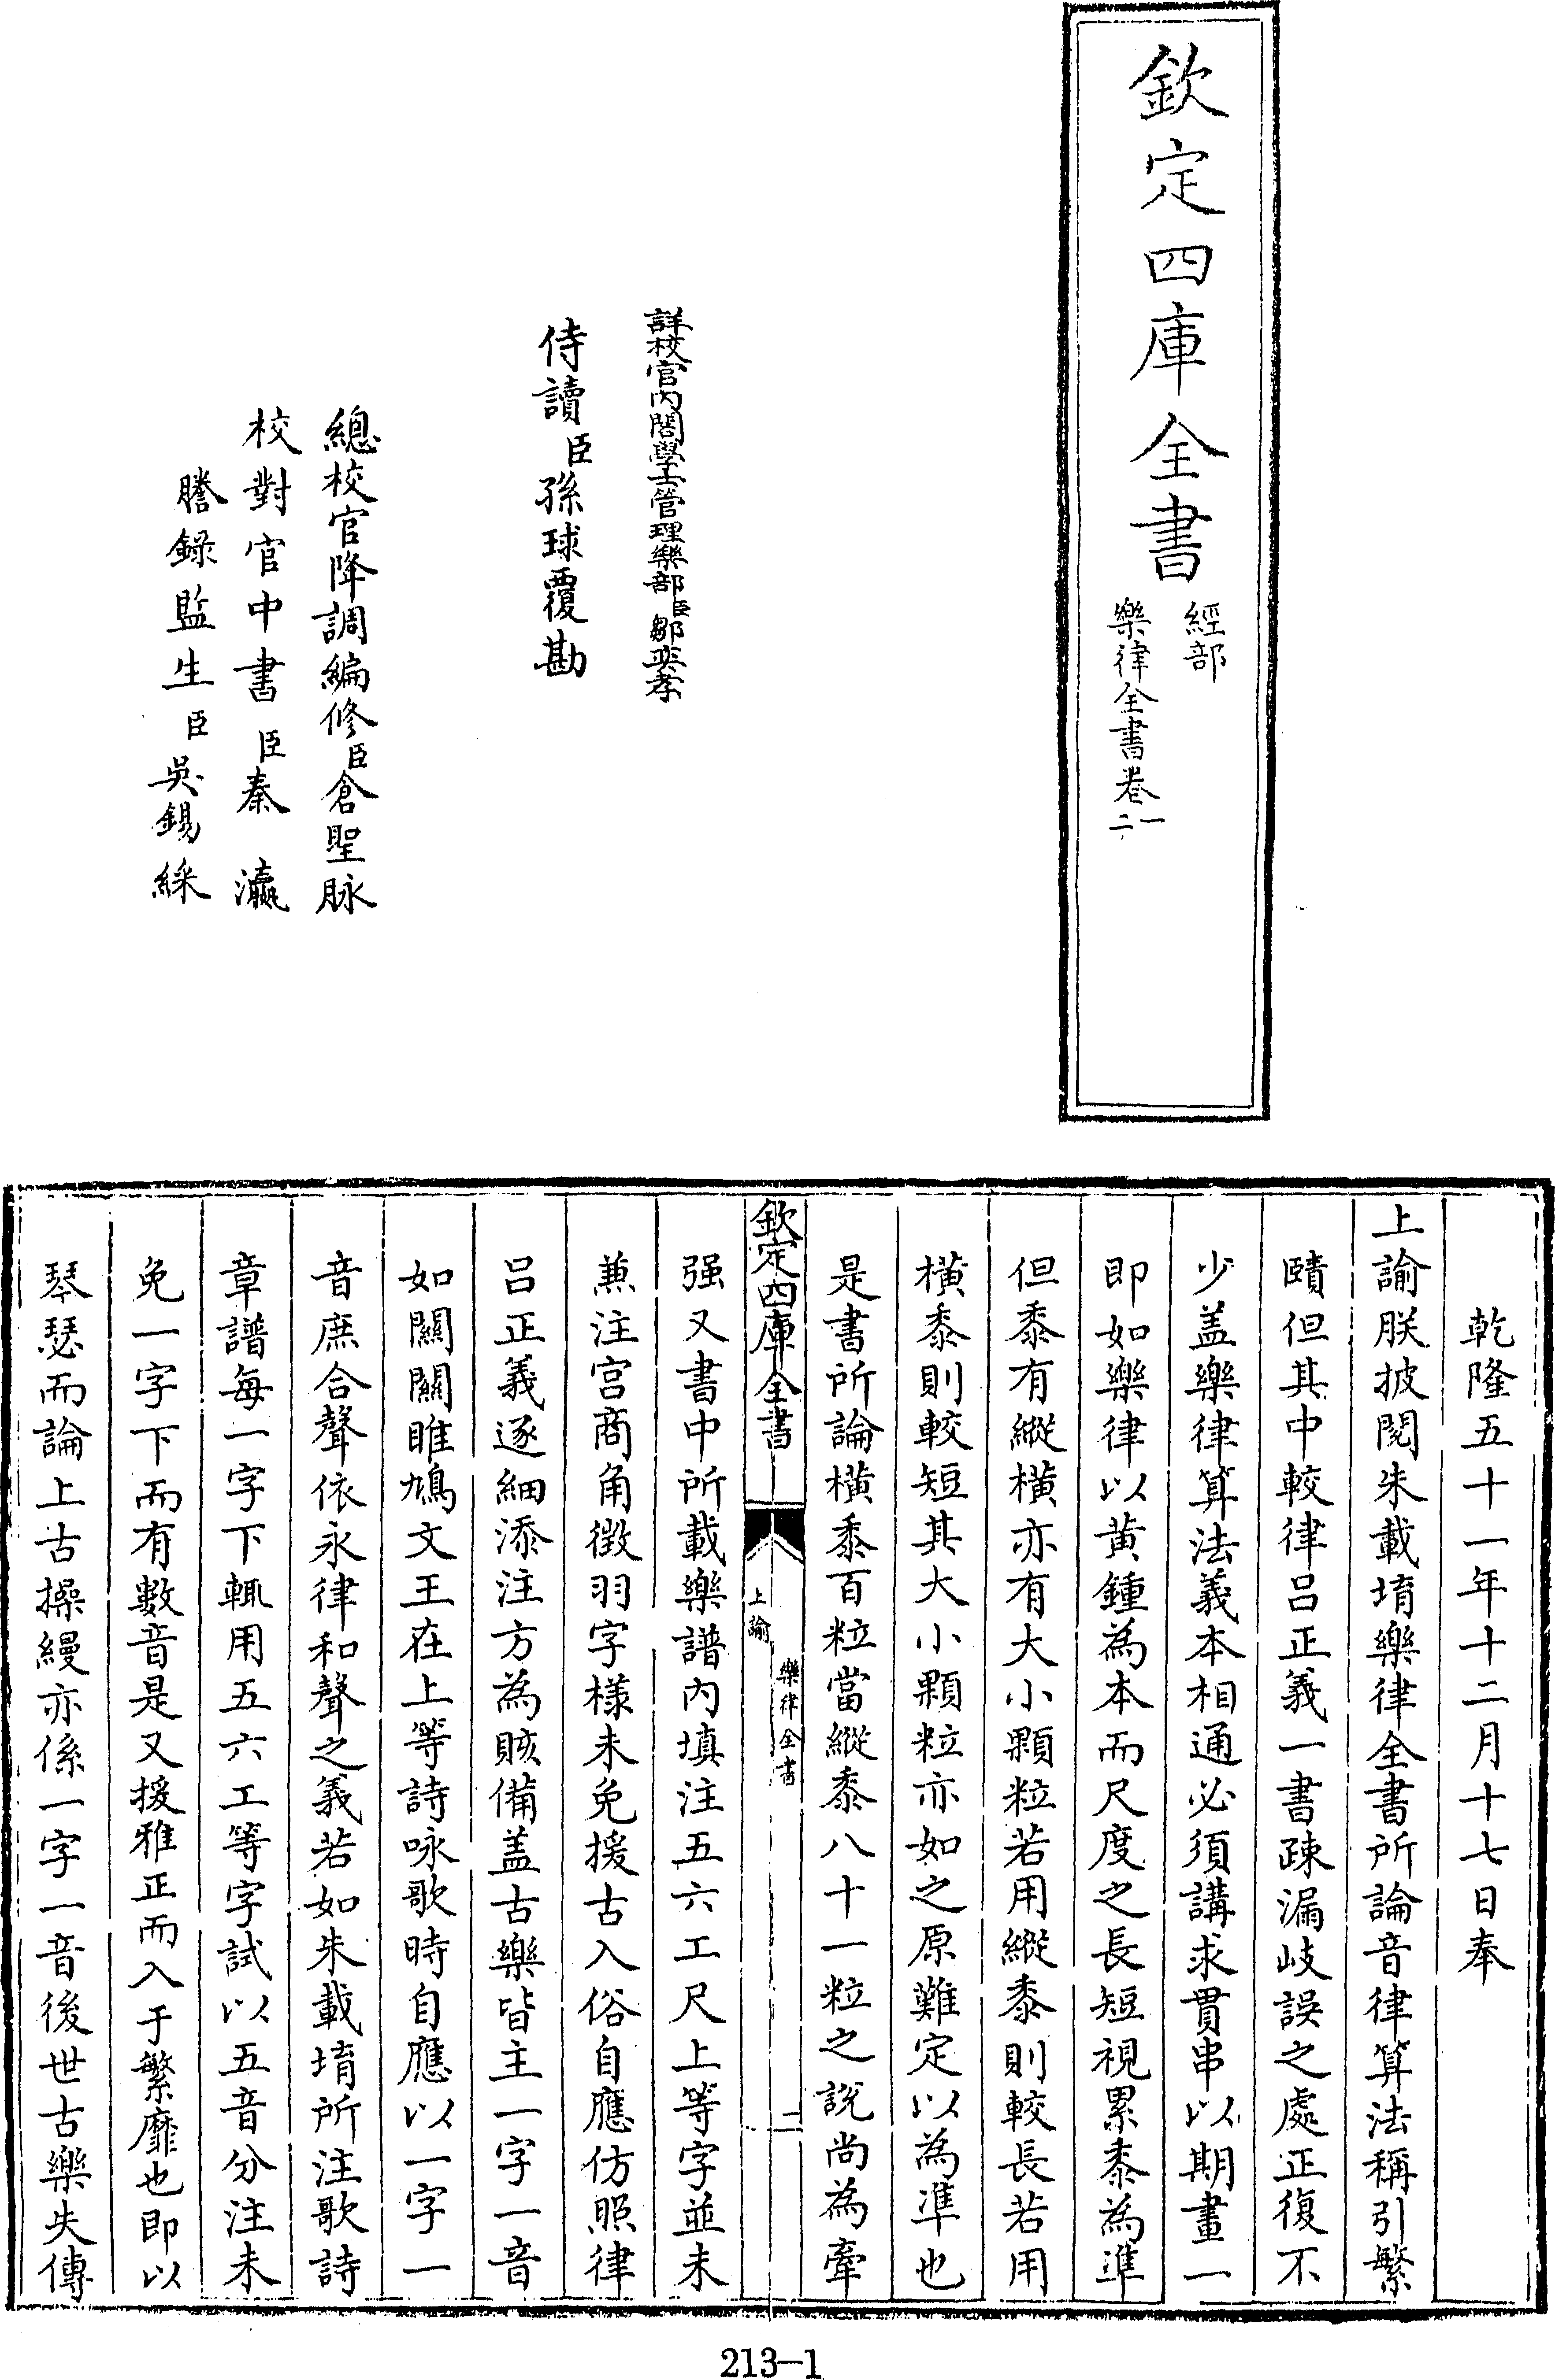 欽定四庫全書
經部
樂律全書卷一
二
詳校官內閣學士管理樂部臣鄒奕孝
侍讀臣孫球覆勘
總校官降調編修臣倉聖脉
校對官中書臣秦瀛
謄錄監生臣吳錫綵
乾隆五十一年十二月十七日奉
上諭朕披閱朱載堉樂律全書所論音律算法稱引繁
賾但其中較律呂正義一書疎漏岐誤之處正復不
少盖樂律算法義本相通必須講求貫串以期畫一
即如樂律以黃鍾為本而尺度之長短視累黍為準
但黍有縱橫亦有大小顆粒若用縱黍則較長若用
橫黍則較短其大小顆粒亦如之原難定以為準也
是書所論橫黍百粒當縱黍八十一粒之說尚為牽
欽定四庫全書
樂律全書
上諭
二
强又書中所載樂譜內填注五六工尺上等字並未
兼注宮商角徵羽字様未免援古入俗自應仿照律
呂正義逐細添注方為賅備盖古樂皆主一字一音
如關關雎鳩文王在上等詩咏歌時自應以一字一
音庶合聲依永律和聲之義若如朱載堉所注歌詩
章譜每一字下輒用五六工等字試以五音分注未
免一字下而有數音是又援雅正而入于繁靡也即以
琴瑟而論上古操縵亦係一字一音後世古樂失傳
213-1